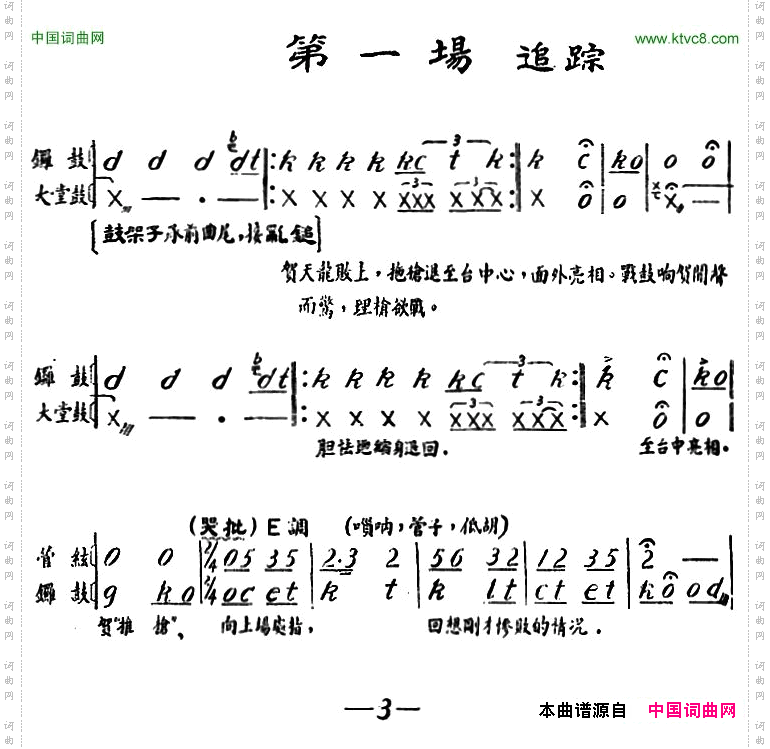 中国词曲网
www.ktvc8.com
第一場 追踪
鑼鼓 d d d dt k k k k kc t k k c ko o o
大堂鼓 x — . — x x x x xxx xxx x o o x —
[鼓架子承前曲尾,接亂鎚]
贺天龍敗上,拖槍退至台中心,面外亮相。戰鼓响贺闻聲
而驚,理槍欲戰。
鑼鼓 d d d dt k k k k kc t k k c ko
大堂鼓 x — . — x x x x xxx xxx x o o
胆怯地縮身退回. 至台中亮相.
(哭批) E調 (嗩呐,管子,低胡)
管絃 0 0 2/4 05 35 2·3 2 56 32 12 35 2 —
鑼鼓 g ko 2/4 oc et k t k lt ct et ko od
贺"推 槍"、 向上場處指, 回想剛才惨敗的情况.
—3—
本曲谱源自 中国词曲网